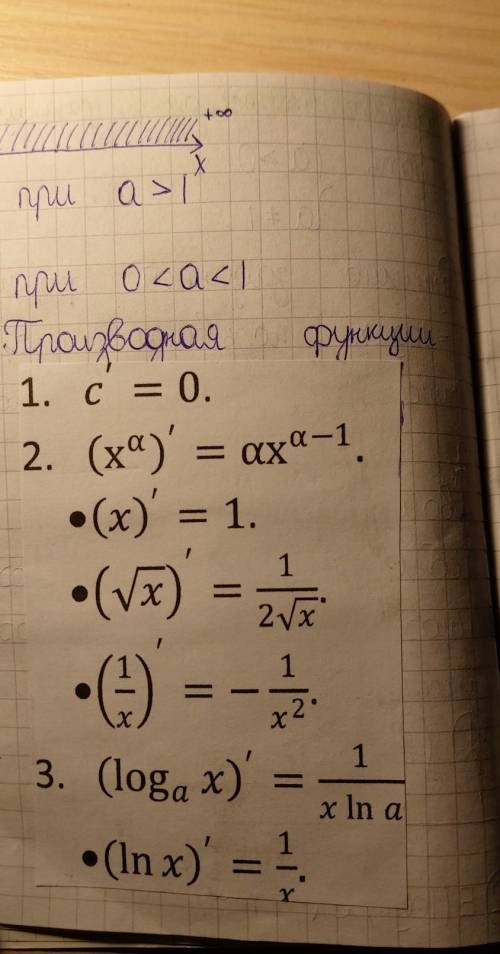 +∞
x
при a > 1
при 0 < a < 1
Производная функции
1. c′ = 0.
2. (x^α)′ = αx^(α−1).
•(x)′ = 1.
•(√x)′ = 1/(2√x).
•(1/x)′ = −1/x².
3. (logₐ x)′ = 1/(x ln a)
•(ln x)′ = 1/x.